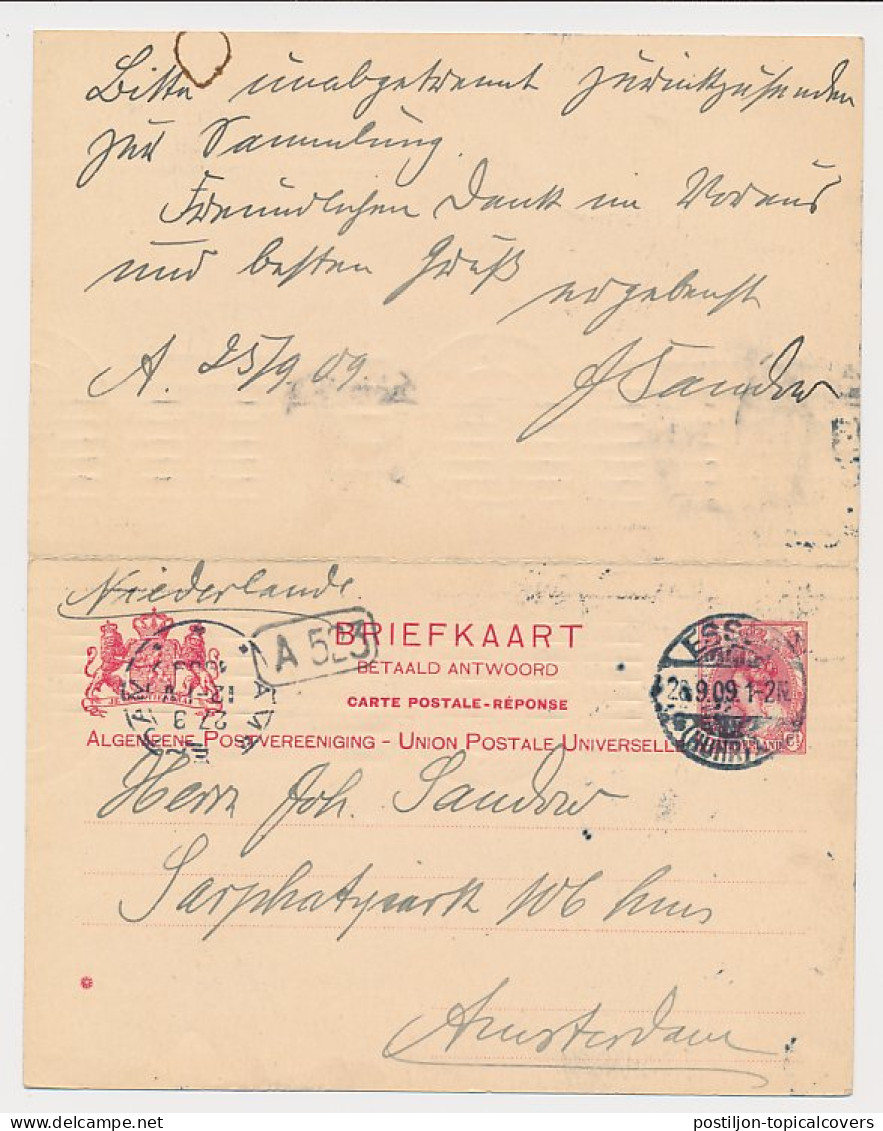 Bitte unabgetrennt zurückzusenden
zur Sammlung.
Freundlichen Dank im Voraus
und besten Gruß
ergebenst
A. 25/9 09.
J Sandow
Niederlande.
A 523
BRIEFKAART
BETAALD ANTWOORD
CARTE POSTALE-RÉPONSE
ALGEMEENE POSTVEREENIGING - UNION POSTALE UNIVERSELLE
ESS
26.9.09.1-2N
(RUHR)
Herrn Joh. Sandow
Sarphatipark 106 huis
Amsterdam
postiljon-topicalcovers